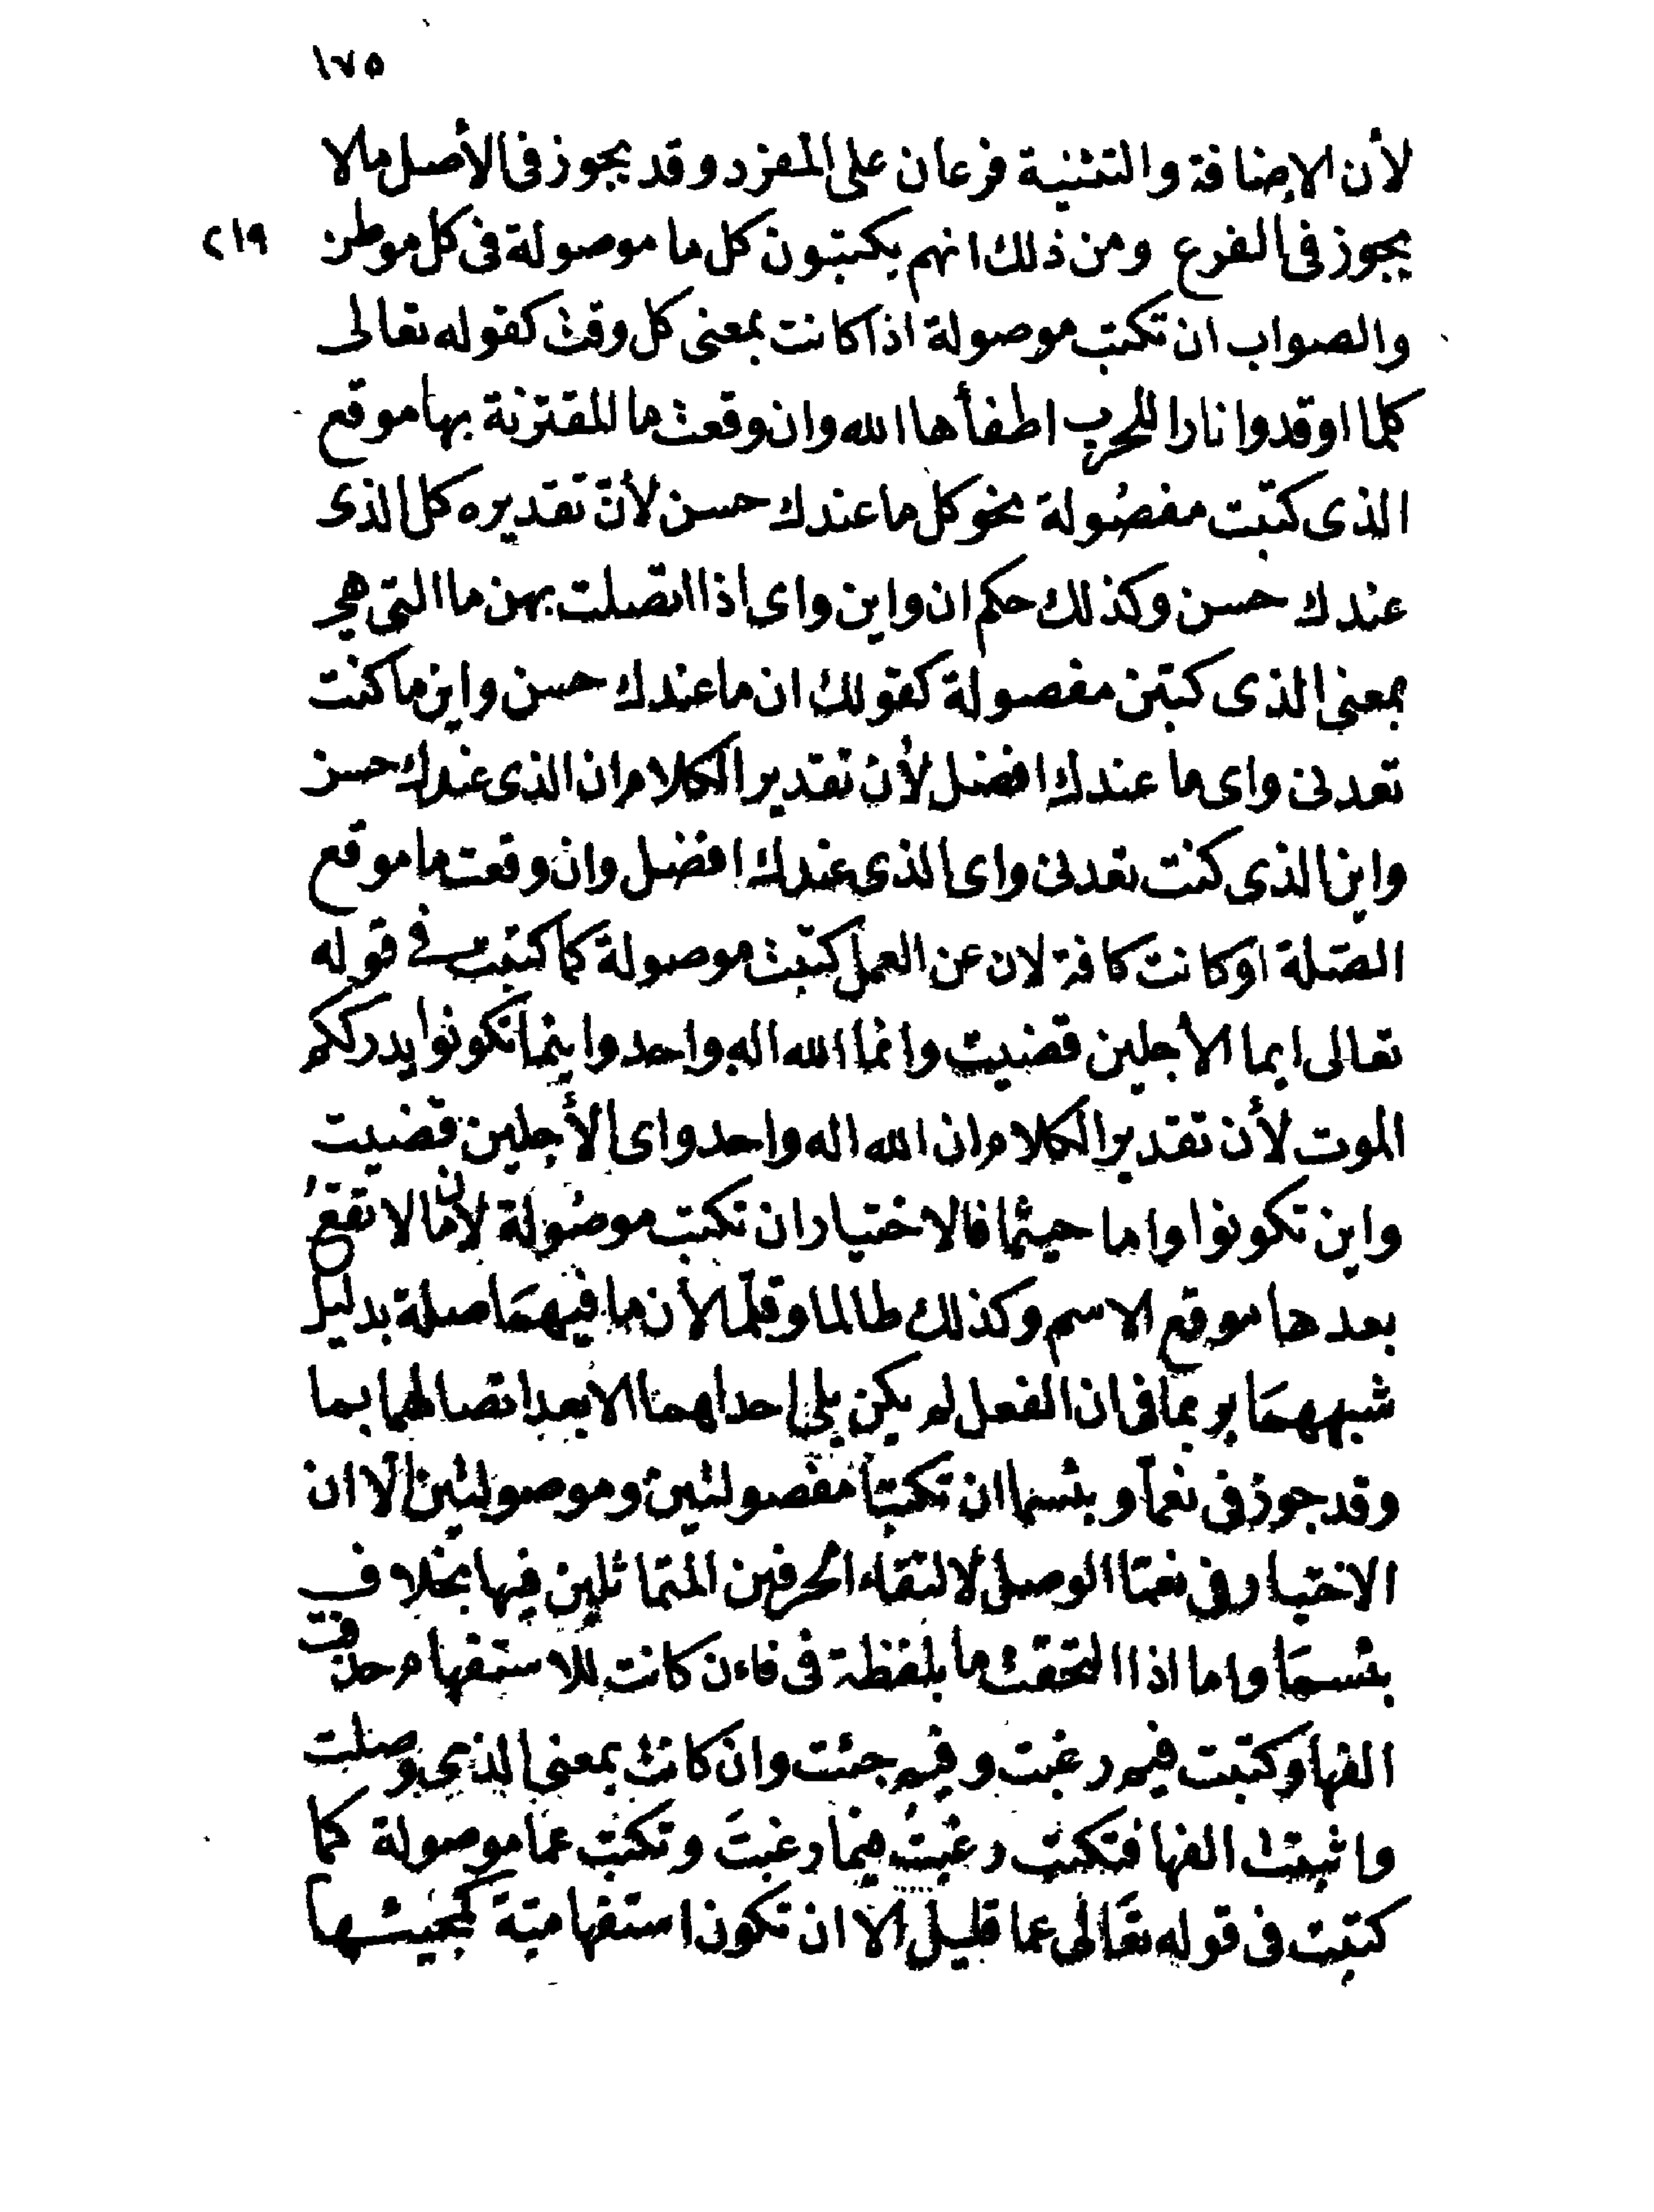 ١٧٥
لأن الإضافة والتثنية فرعان على المفرد وقد يجوز فى الأصل مالا
يجوز فى الفرع ومن ذلك انهم يكتبون كل ما موصولة فى كل موطن ٢١٩
والصواب ان تكتب موصولة اذا كانت بمعنى كل وقت كقوله تعالى
كلما اوقدوا نارا للحرب اطفأها الله وان وقعت ما المقترنة بها موقع
الذى كتبت مفصُولة نحو كل ما عندك حسن لأنّ تقديره كل الذى
عندك حسن وكذلك حكم ان واين واى اذا اتصلت بهن ما التى هى
بمعنى الذى كتبن مفصولة كقولك ان ما عندك حسن واين ما كنت
تعدنى واى ما عندك افضل لأن تقدير الكلام ان الذى عندك حسن
واين الذى كنت تعدنى واى الذى عندك افضل وان وقعت ما موقع
الصّلة او كانت كافة لان عن العمل كتبت موصولة كما كتبت فى قوله
تعالى ايما الأجلين قضيت وانما الله اله واحد واينما تكونوا يدرككم
الموت لأن تقدير الكلام ان الله اله واحد واى الأجلين قضيت
واين تكونوا واما حيثما فالاختيار ان تكتب موصُولة لأن ما لا تقعُ
بعدها موقع الاسم وكذلك طالما وقلّما لأن ما فيهمَا صلة بدليل
شبههمَا بربما فى ان الفعل لم يكن يلى احداهما الا بعد اتصالهما بما
وقد جوز فى نعما وبئسما ان تكتبا مفصولتين وموصولتين الّا ان
الاختيار فى نعمّا الوصل لالتقاء الحرفين المتماثلين فيها بخلاف
بئسمَا واما اذا التحقت ما بلفظة فى فاءن كانت للاستفهام حذفت
الفها وكتبت فيم رغبت وفيم جئت وان كانت بمعنى الذى وصلت
واثبتت الفها فتكتب رغبتُ فيما رغبتَ وتكتب عما موصولة كما
كتبت فى قوله تعَالى عما قليل الا ان تكون استفهاميّة كمجيئها